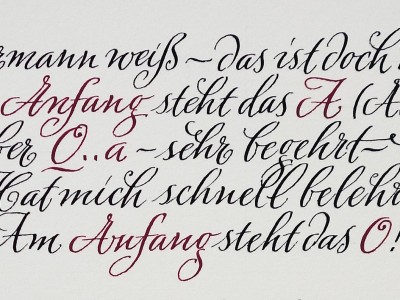 ermann weiß ~ das ist doch
Anfang steht das A (A
ber O..a ~ sehr begehrt ~
Hat mich schnell belehr
Am Anfang steht das O!